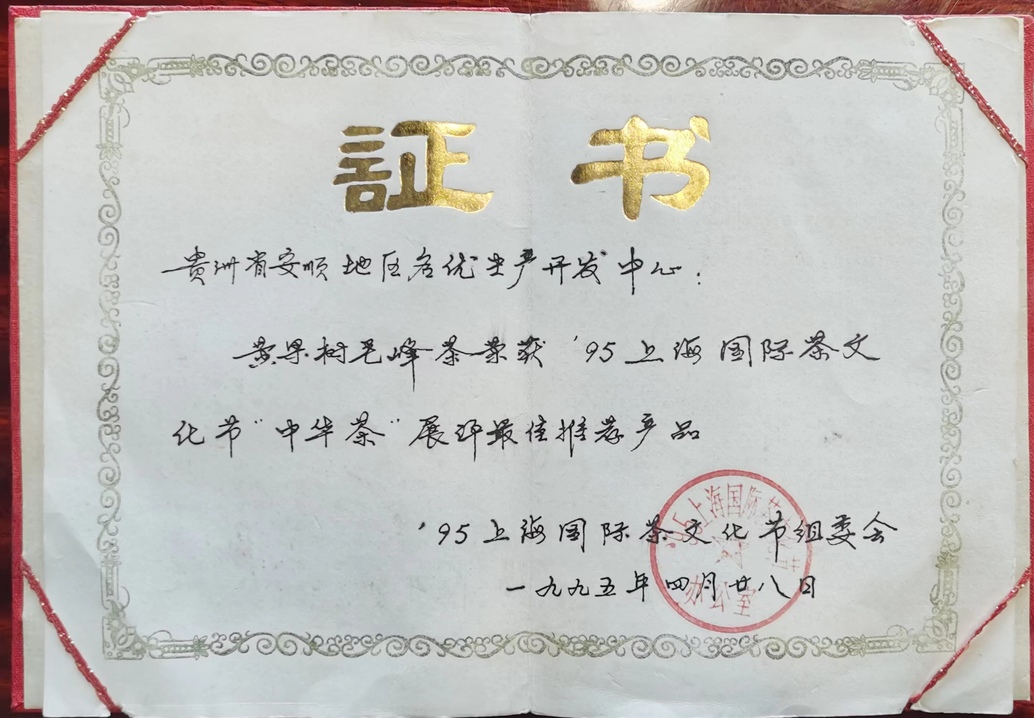 証书
贵州省安顺地区名优生产开发中心：
黄果树毛峰茶荣获'95上海国际茶文
化节"中华茶"展评最佳推荐产品
'95上海国际茶文化节组委会
一九九五年四月廿八日
办公室